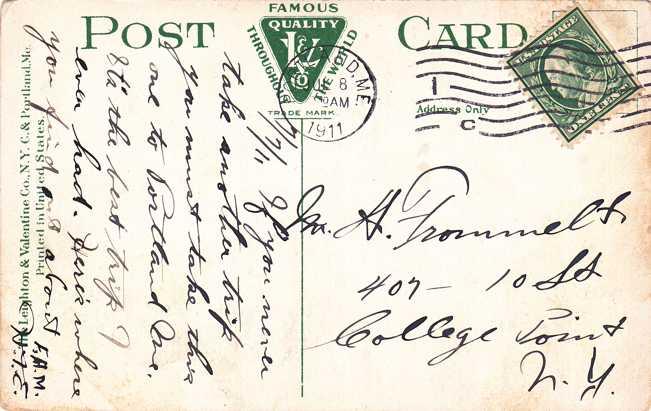 POST CARD
FAMOUS
QUALITY
THROUGHOUT THE WORLD
L&V Co
TRADE MARK
8
AM
1911
D, ME.
U.S. POSTAGE
ONE CENT
Address Only
1
C
The Leighton & Valentine Co., N.Y. C. & Portland, Me.
Printed in United States.
7/7/11 If you never
take another trip
you must take this
one to Portland Me.
It's the best trip I
ever had. Here's where
you find out about F.A.M.
H.F.E.
Mr. H. Frommelt
407 - 10 St
College Point
N.Y.